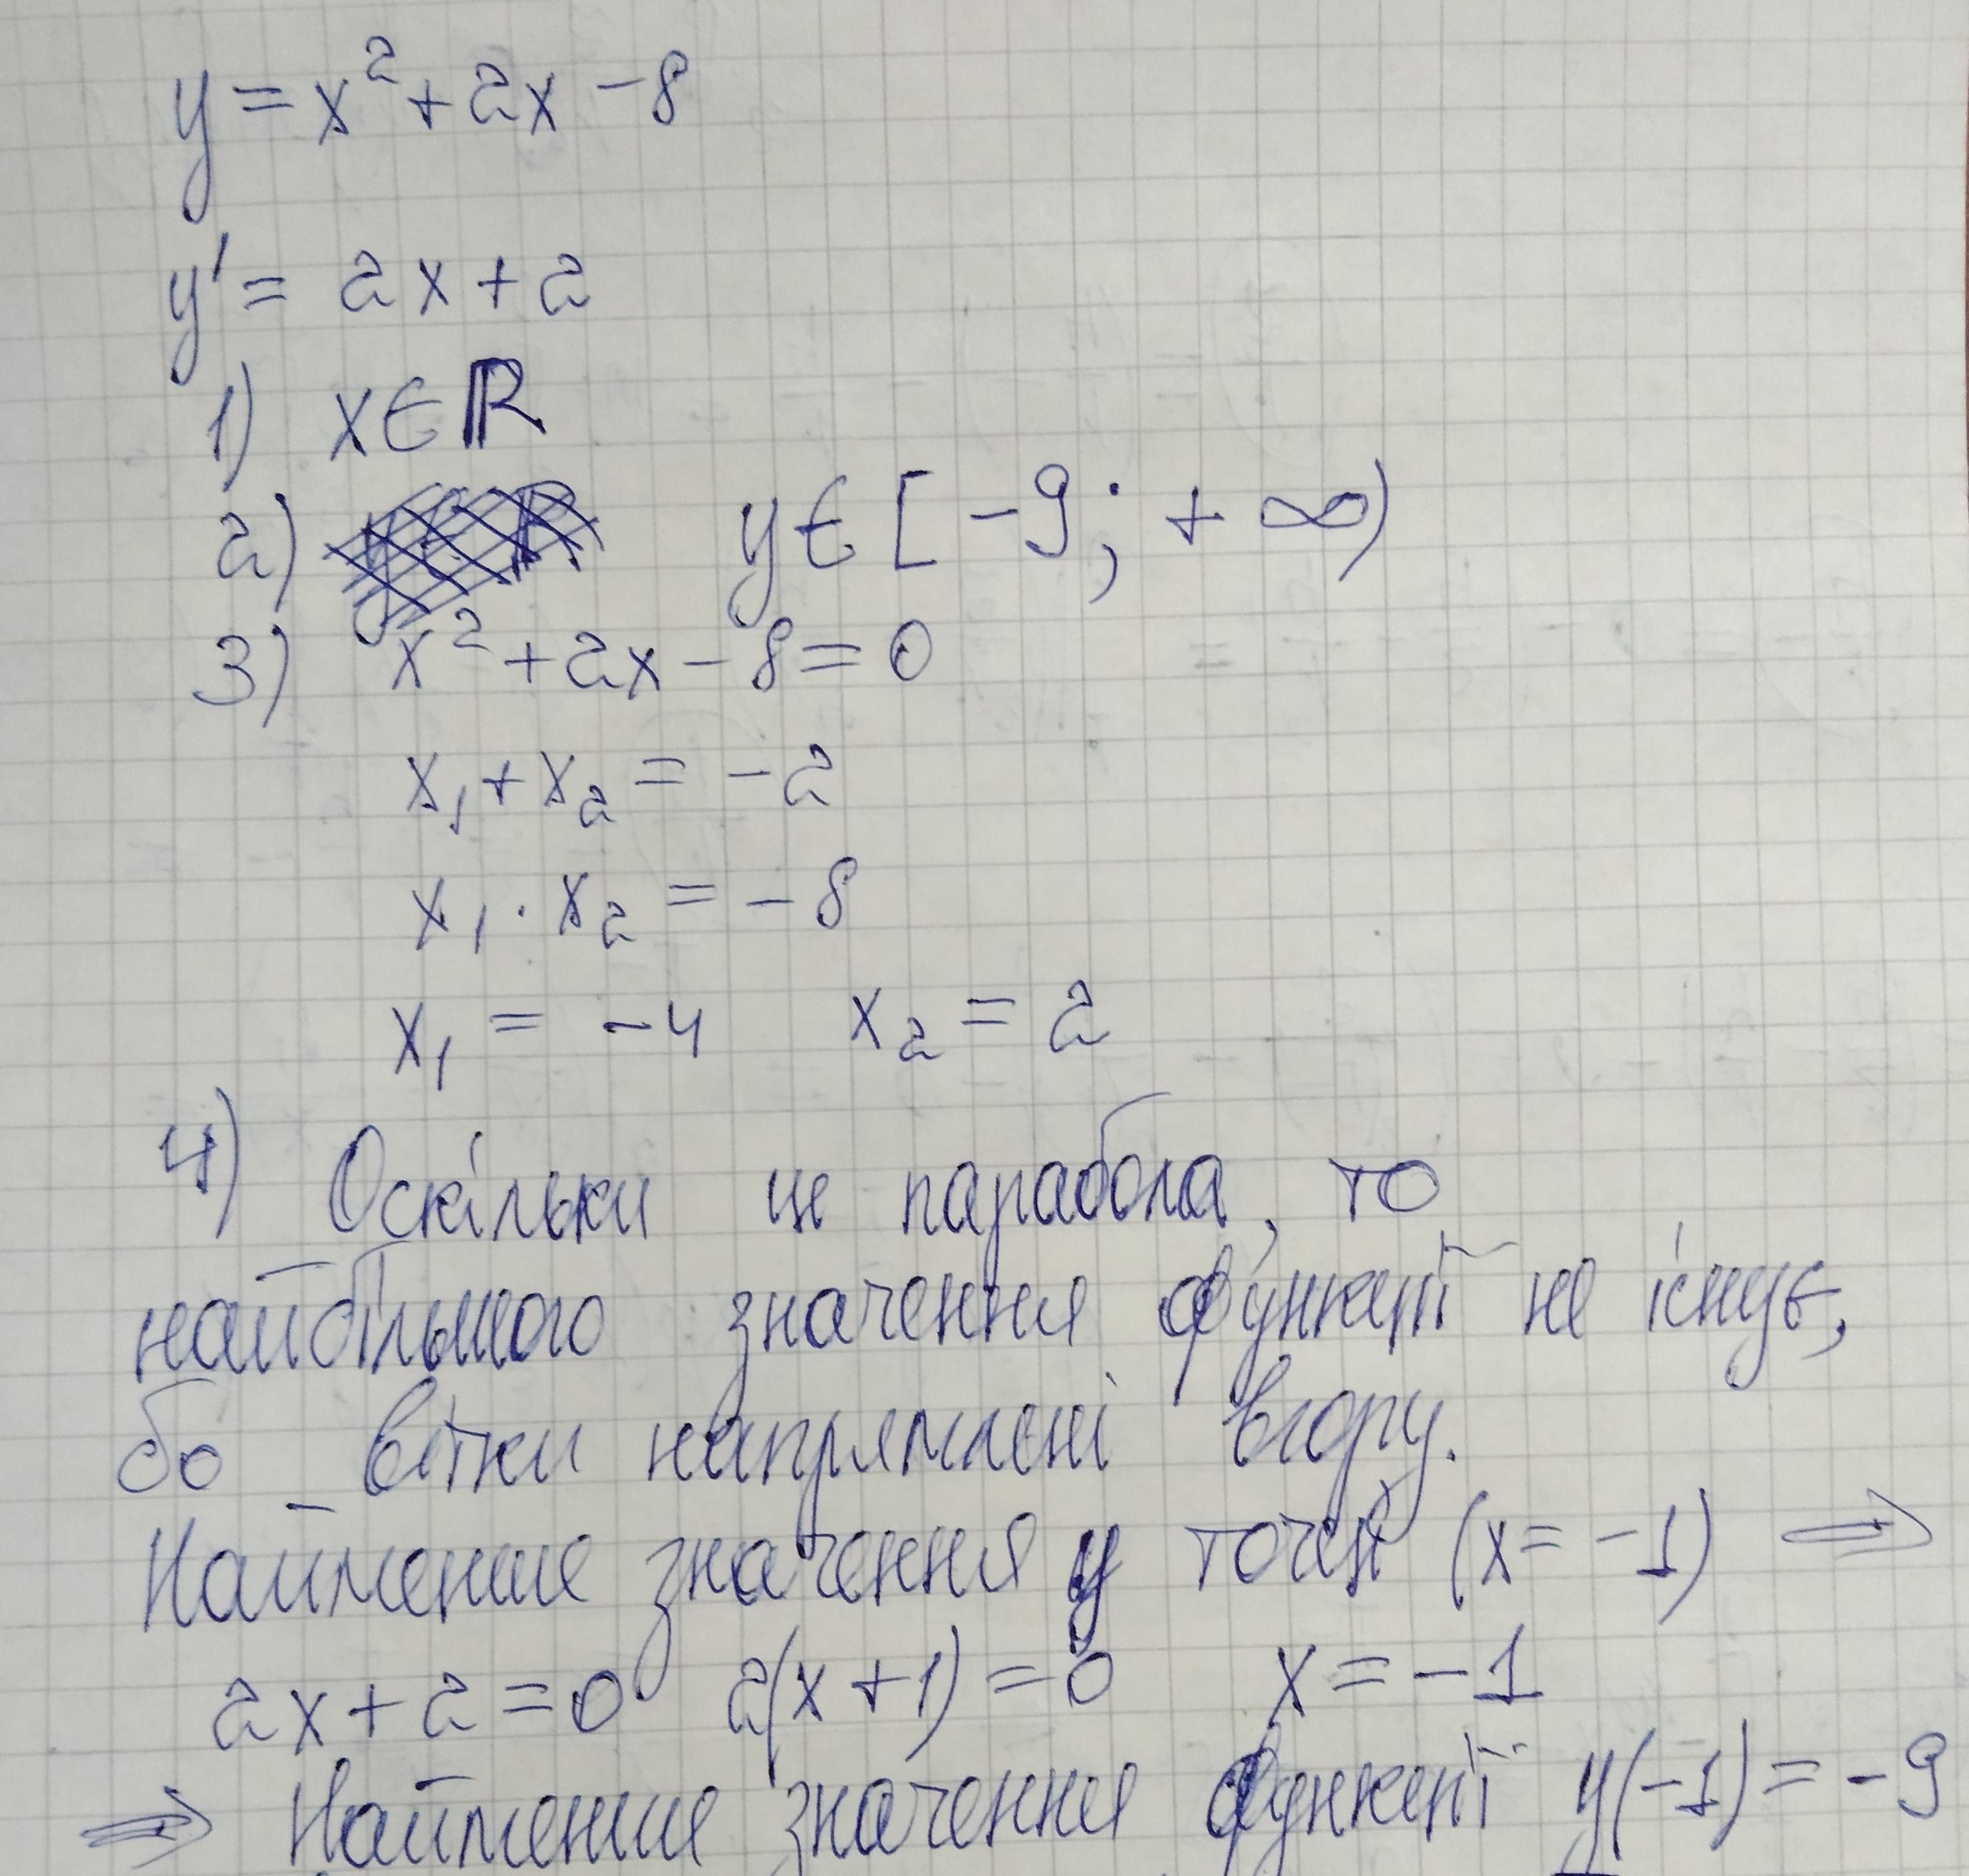 y = x² + 2x - 8
y' = 2x + 2
1) x ∈ ℝ
2) y ∈ [-9; + ∞)
3) x² + 2x - 8 = 0
x₁ + x₂ = -2
x₁ · x₂ = -8
x₁ = -4 x₂ = 2
4) Оскільки це парабола, то
найбільшого значення функції не існує,
бо вітки напрямлені вгору.
Найменше значення у точці (x = -1) ⇒
2x + 2 = 0 2(x + 1) = 0 x = -1
⇒ Найменше значення функції y(-1) = -9